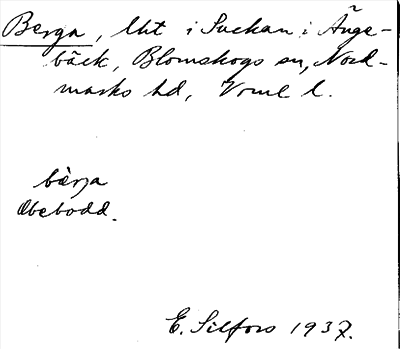 Berga, lht i Svekan i Ånge-
bäck, Blomskogs sn, Nord-
marks hd, Vrml l.
bärja
Obebodd.
E. Silfors 1937.